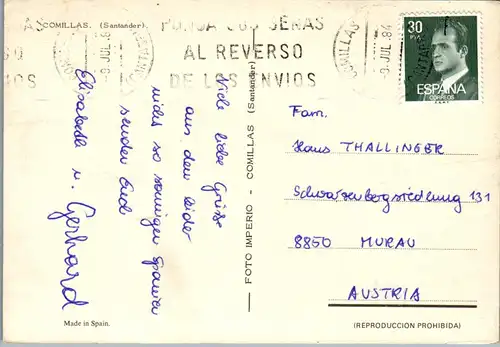 COMILLAS. (Santander).
PONGA SUS SEÑAS
AL REVERSO
DE LOS ENVIOS
COMILLAS
JUL. 84
30
PTA
ESPAÑA
CORREOS
Viele liebe Grüße
aus dem leider
nicht so sonnigen Spanien
senden Euch
Elisabeth u. Gerhard
FOTO IMPERIO - COMILLAS (Santander)
Fam.
Hans THALLINGER
Schwarzenbergsiedlung 131
8850 MURAU
AUSTRIA
Made in Spain.
(REPRODUCCION PROHIBIDA)